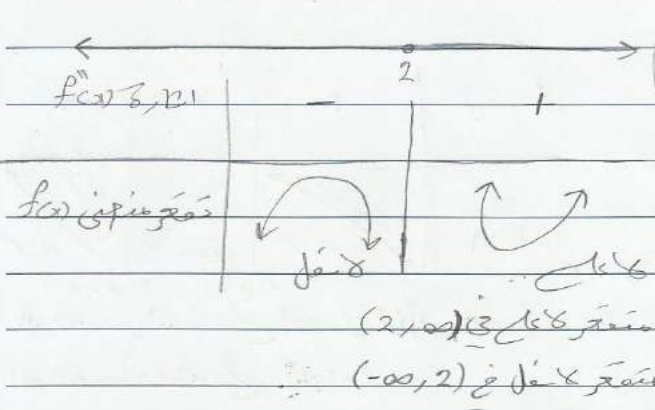 2
إشارة f''(x) - +
تقعر منحنى f(x)
لأسفل لأعلى
مقعر لأعلى في (2, ∞)
مقعر لأسفل في (-∞, 2)